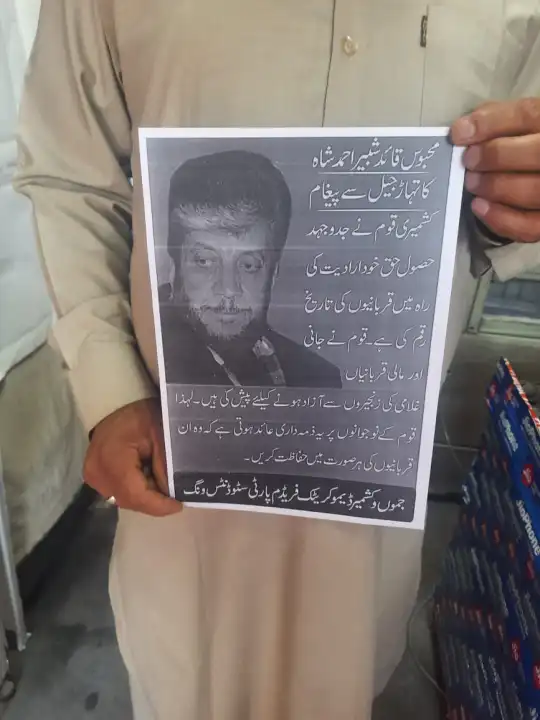 محبوس قائد شبیر احمد شاہ
کا تہاڑ جیل سے پیغام
کشمیری قوم نے جدوجہد
حصول حق خودارادیت کی
راہ میں قربانیوں کی تاریخ
رقم کی ہے۔ قوم نے جانی
اور مالی قربانیاں
غلامی کی زنجیروں سے آزاد ہونے کیلئے پیش کی ہیں۔ لہذا
قوم کے نوجوانوں پر یہ ذمہ داری عائد ہوتی ہے کہ وہ ان
قربانیوں کی ہر صورت میں حفاظت کریں۔
جموں و کشمیر ڈیموکریٹک فریڈم پارٹی سٹوڈنٹس ونگ
JioPhone